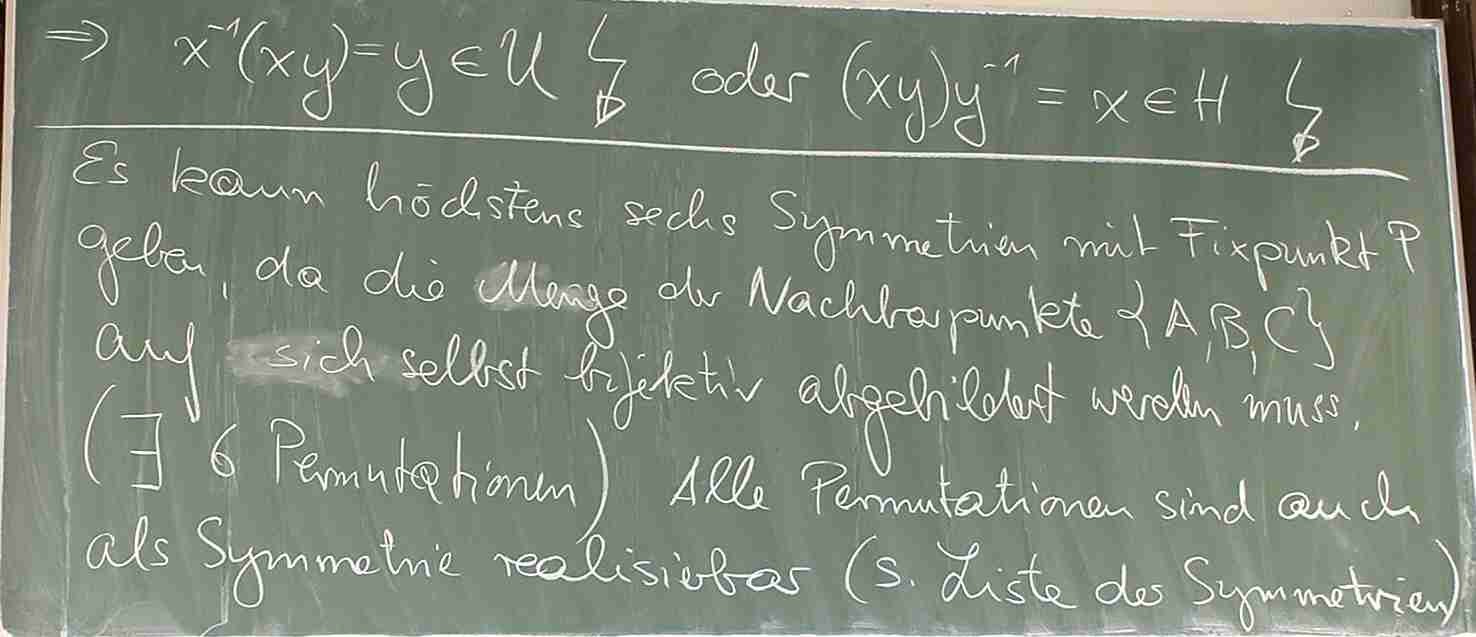 ⇒ x⁻¹(xy)=y∈U ↯ oder (xy)y⁻¹ = x∈H ↯
Es kann höchstens sechs Symmetrien mit Fixpunkt P
geben, da die Menge der Nachbarpunkte {A,B,C}
auf sich selbst bijektiv abgebildet werden muss.
(∃ 6 Permutationen) Alle Permutationen sind auch
als Symmetrie realisierbar (s. Liste der Symmetrien)